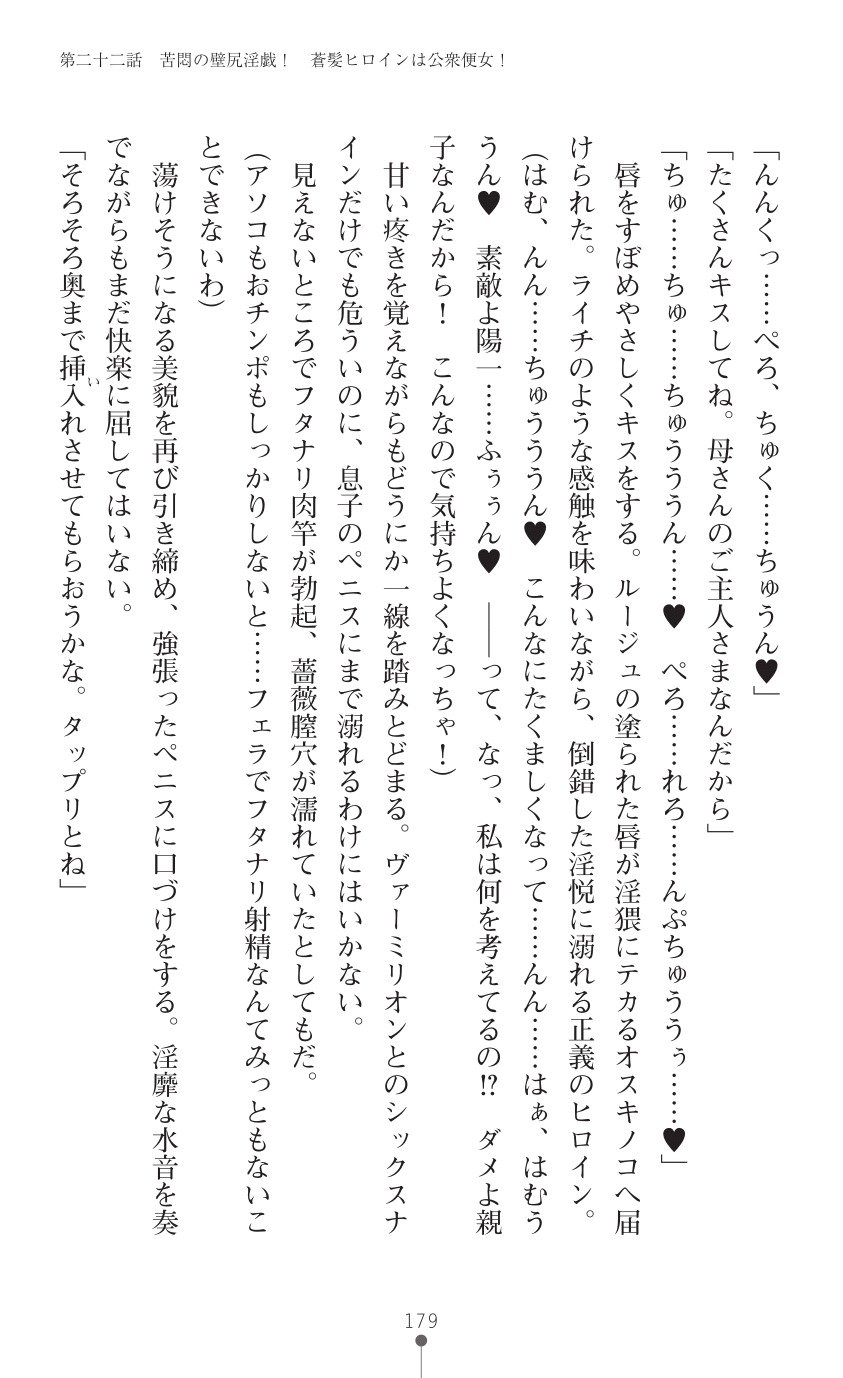 第二十二話　苦悶の壁尻淫戯！　蒼髪ヒロインは公衆便女！
「んんくっ……ぺろ、ちゅく……ちゅうん♥」
「たくさんキスしてね。母さんのご主人さまなんだから」
「ちゅ……ちゅ……ちゅうううん……♥　ぺろ……れろ……んぷちゅううぅ……♥」
　唇をすぼめやさしくキスをする。ルージュの塗られた唇が淫猥にテカるオスキノコへ届
けられた。ライチのような感触を味わいながら、倒錯した淫悦に溺れる正義のヒロイン。
（はむ、んん……ちゅうううん♥　こんなにたくましくなって……んん……はぁ、はむう
うん♥　素敵よ陽一……ふぅぅん♥　――って、なっ、私は何を考えてるの!?　ダメよ親
子なんだから！　こんなので気持ちよくなっちゃ！）
　甘い疼きを覚えながらもどうにか一線を踏みとどまる。ヴァーミリオンとのシックスナ
インだけでも危ういのに、息子のペニスにまで溺れるわけにはいかない。
　見えないところでフタナリ肉竿が勃起、薔薇膣穴が濡れていたとしてもだ。
（アソコもおチンポもしっかりしないと……フェラでフタナリ射精なんてみっともないこ
とできないわ）
　蕩けそうになる美貌を再び引き締め、強張ったペニスに口づけをする。淫靡な水音を奏
でながらもまだ快楽に屈してはいない。
「そろそろ奥まで挿入れさせてもらおうかな。タップリとね」
い
179